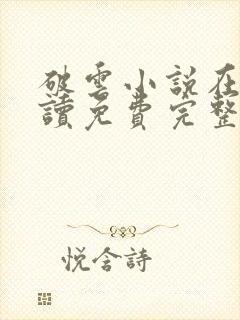 破雲小説在
讀免費完整
悅含詩